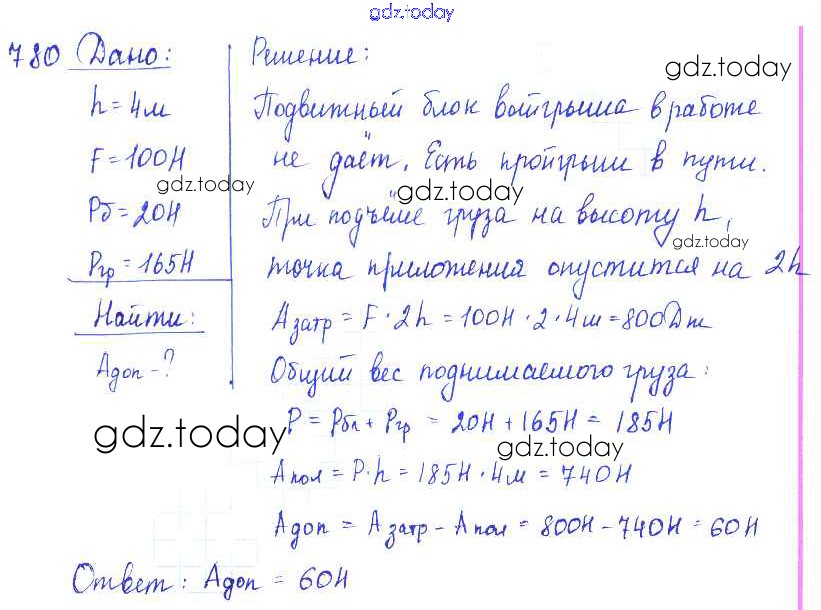 gdz.today
780 Дано:
h = 4м
F = 100Н
Рб = 20Н
Ргр = 165Н
Найти:
Aдоп - ?
Решение:
Подвижный блок выйгрыша в работе
не даёт. Есть пройгрыш в пути.
При подъёме груза на высоту h,
точка приложения опустится на 2h
Aзатр = F · 2h = 100Н · 2 · 4м = 800Дж
Общий вес поднимаемого груза:
P = Рбл + Ргр = 20Н + 165Н = 185Н
Aпол = P·h = 185Н · 4м = 740Н
Aдоп = Aзатр - Aпол = 800Н - 740Н = 60Н
Ответ: Aдоп = 60Н
gdz.today
gdz.today
gdz.today
gdz.today
gdz.today
gdz.today